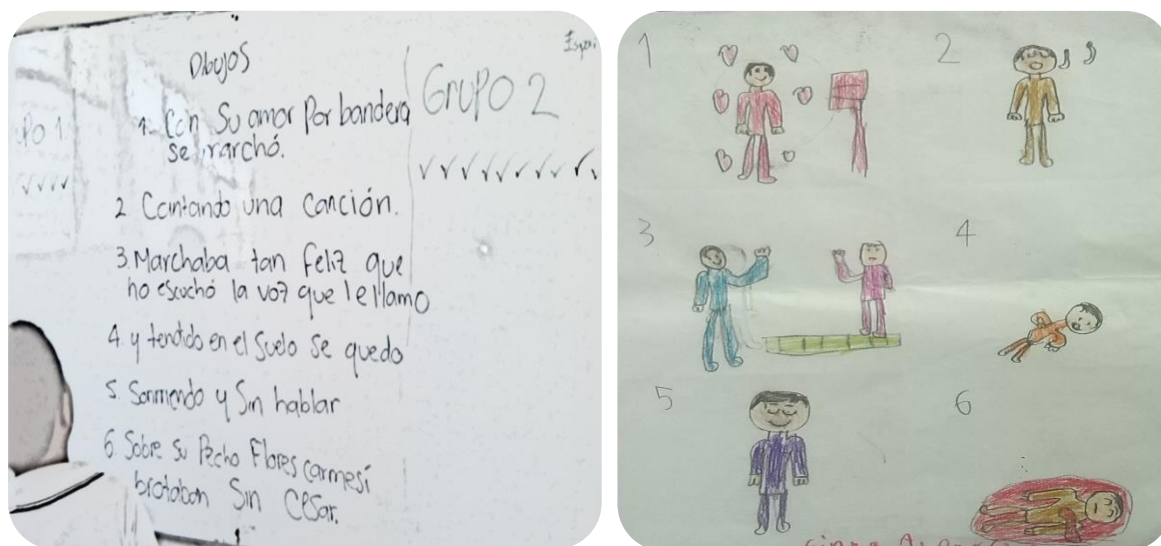 Dibujos
1. Con Su amor Por bandera
se marchó.
2 Cantando una canción.
3. Marchaba tan feliz que
no escuchó la voz que le llamo
4. y tendido en el suelo se quedo
5. Sonriendo y Sin hablar
6 Sobre su Pecho Flores carmesí
brotaban Sin CeSar.
PO 1
GruPO 2
1
2
3
4
5
6